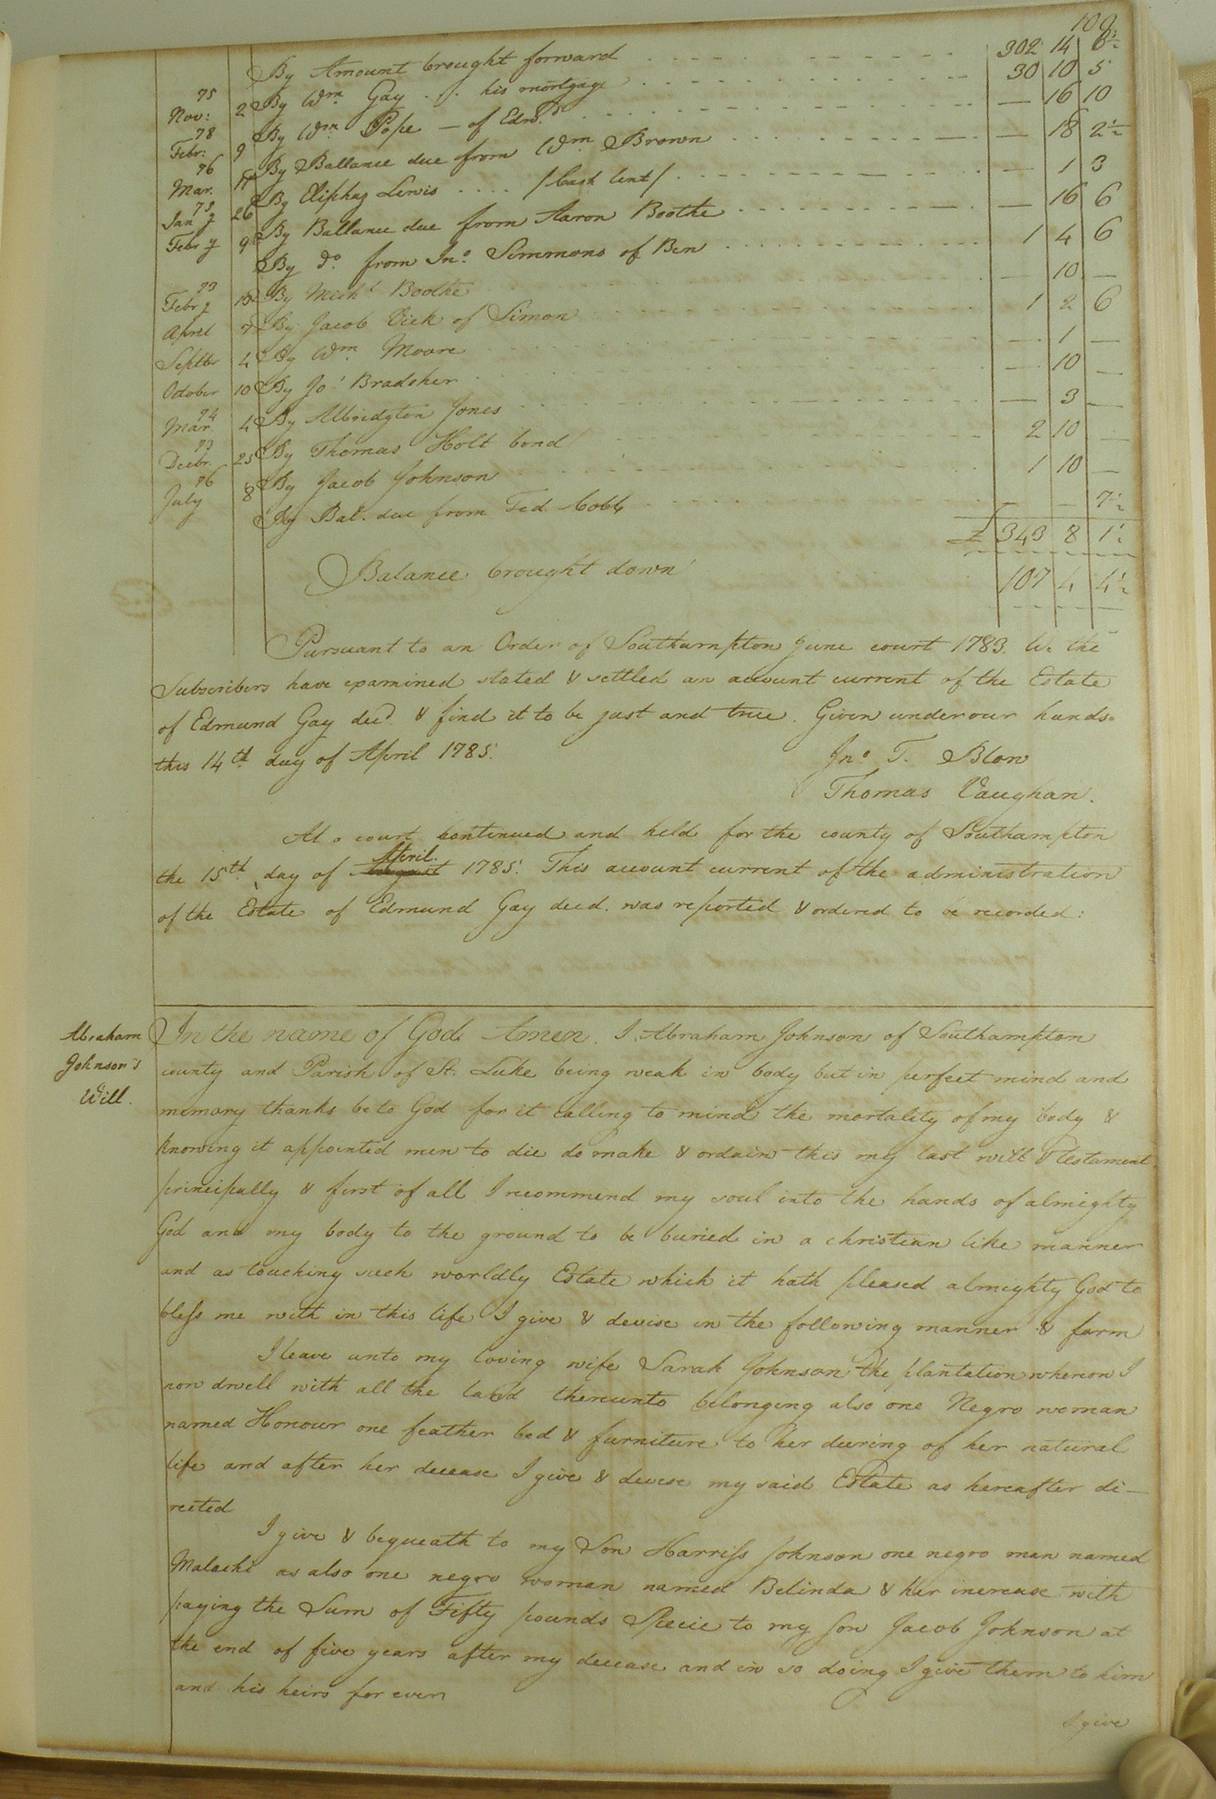 109
By Amount brought forward 302 14 6½
75 Nov: 22 By Wm Gay his mortgage 30 10 5
78 Febr: 9 By Wm Pope — of Edwd. — 16 10
76 Mar. 17 By Ballance due from Wm Brown — 18 2½
Jany 26 By Eliphaz Lewis .... /Cash lent/ — 1 3
Febry 9 By Ballance due from Aaron Boothe — 16 6
By Do. from Jno. Simmons of Ben 1 4 6
73 Febry By Mechl. Boothe — 10 —
April 7 By Jacob Vick of Simon 1 2 6
Septbr 4 By Wm Moore — 1 —
October 10 By Jos Bradsher — 10 —
74 Mar. 4 By Albridgton Jones — 3 —
73 Decbr. 25 By Thomas Holt bond 2 10 —
76 July 8 By Jacob Johnson 1 10 —
By Bal. due from Fed. Cobb — — 7½
£ 343 8 1½
Balance brought down 107 4 4½
Pursuant to an Order of Southampton June court 1783. We the
Subscribers have examined stated & settled an account current of the Estate
of Edmund Gay decd. & find it to be just and true. Given under our hands
this 14th day of April 1785.
Jno. T. Blow
Thomas Vaughan.
At a court continued and held for the county of Southampton
the 15th day of August April 1785. This account current of the administration
of the Estate of Edmund Gay decd. was reported & ordered to be recorded:
Abraham
Johnson's
Will.
In the name of God Amen. I Abraham Johnson of Southampton
county and Parish of St. Luke being weak in body but in perfect mind and
memory thanks be to God for it calling to mind the mortality of my body &
knowing it appointed men to die do make & ordain this my last will & testament
principally & first of all I recommend my soul into the hands of almighty
God and my body to the ground to be buried in a christian like manner
and as touching such worldly Estate which it hath pleased almighty God to
bless me with in this life I give & devise in the following manner & form
I leave unto my loving wife Sarah Johnson the plantation whereon I
now dwell with all the land thereunto belonging also one Negro woman
named Honour one feather bed & furniture to her deering of her natural
life and after her decease I give & devise my said Estate as hereafter di-
rected
I give & bequeath to my Son Harriss Johnson one negro man named
Malachi as also one negro woman named Belinda & her increase with
paying the Sum of Fifty pounds Specie to my son Jacob Johnson at
the end of five years after my decease and in so doing I give them to him
and his heirs for ever
I give